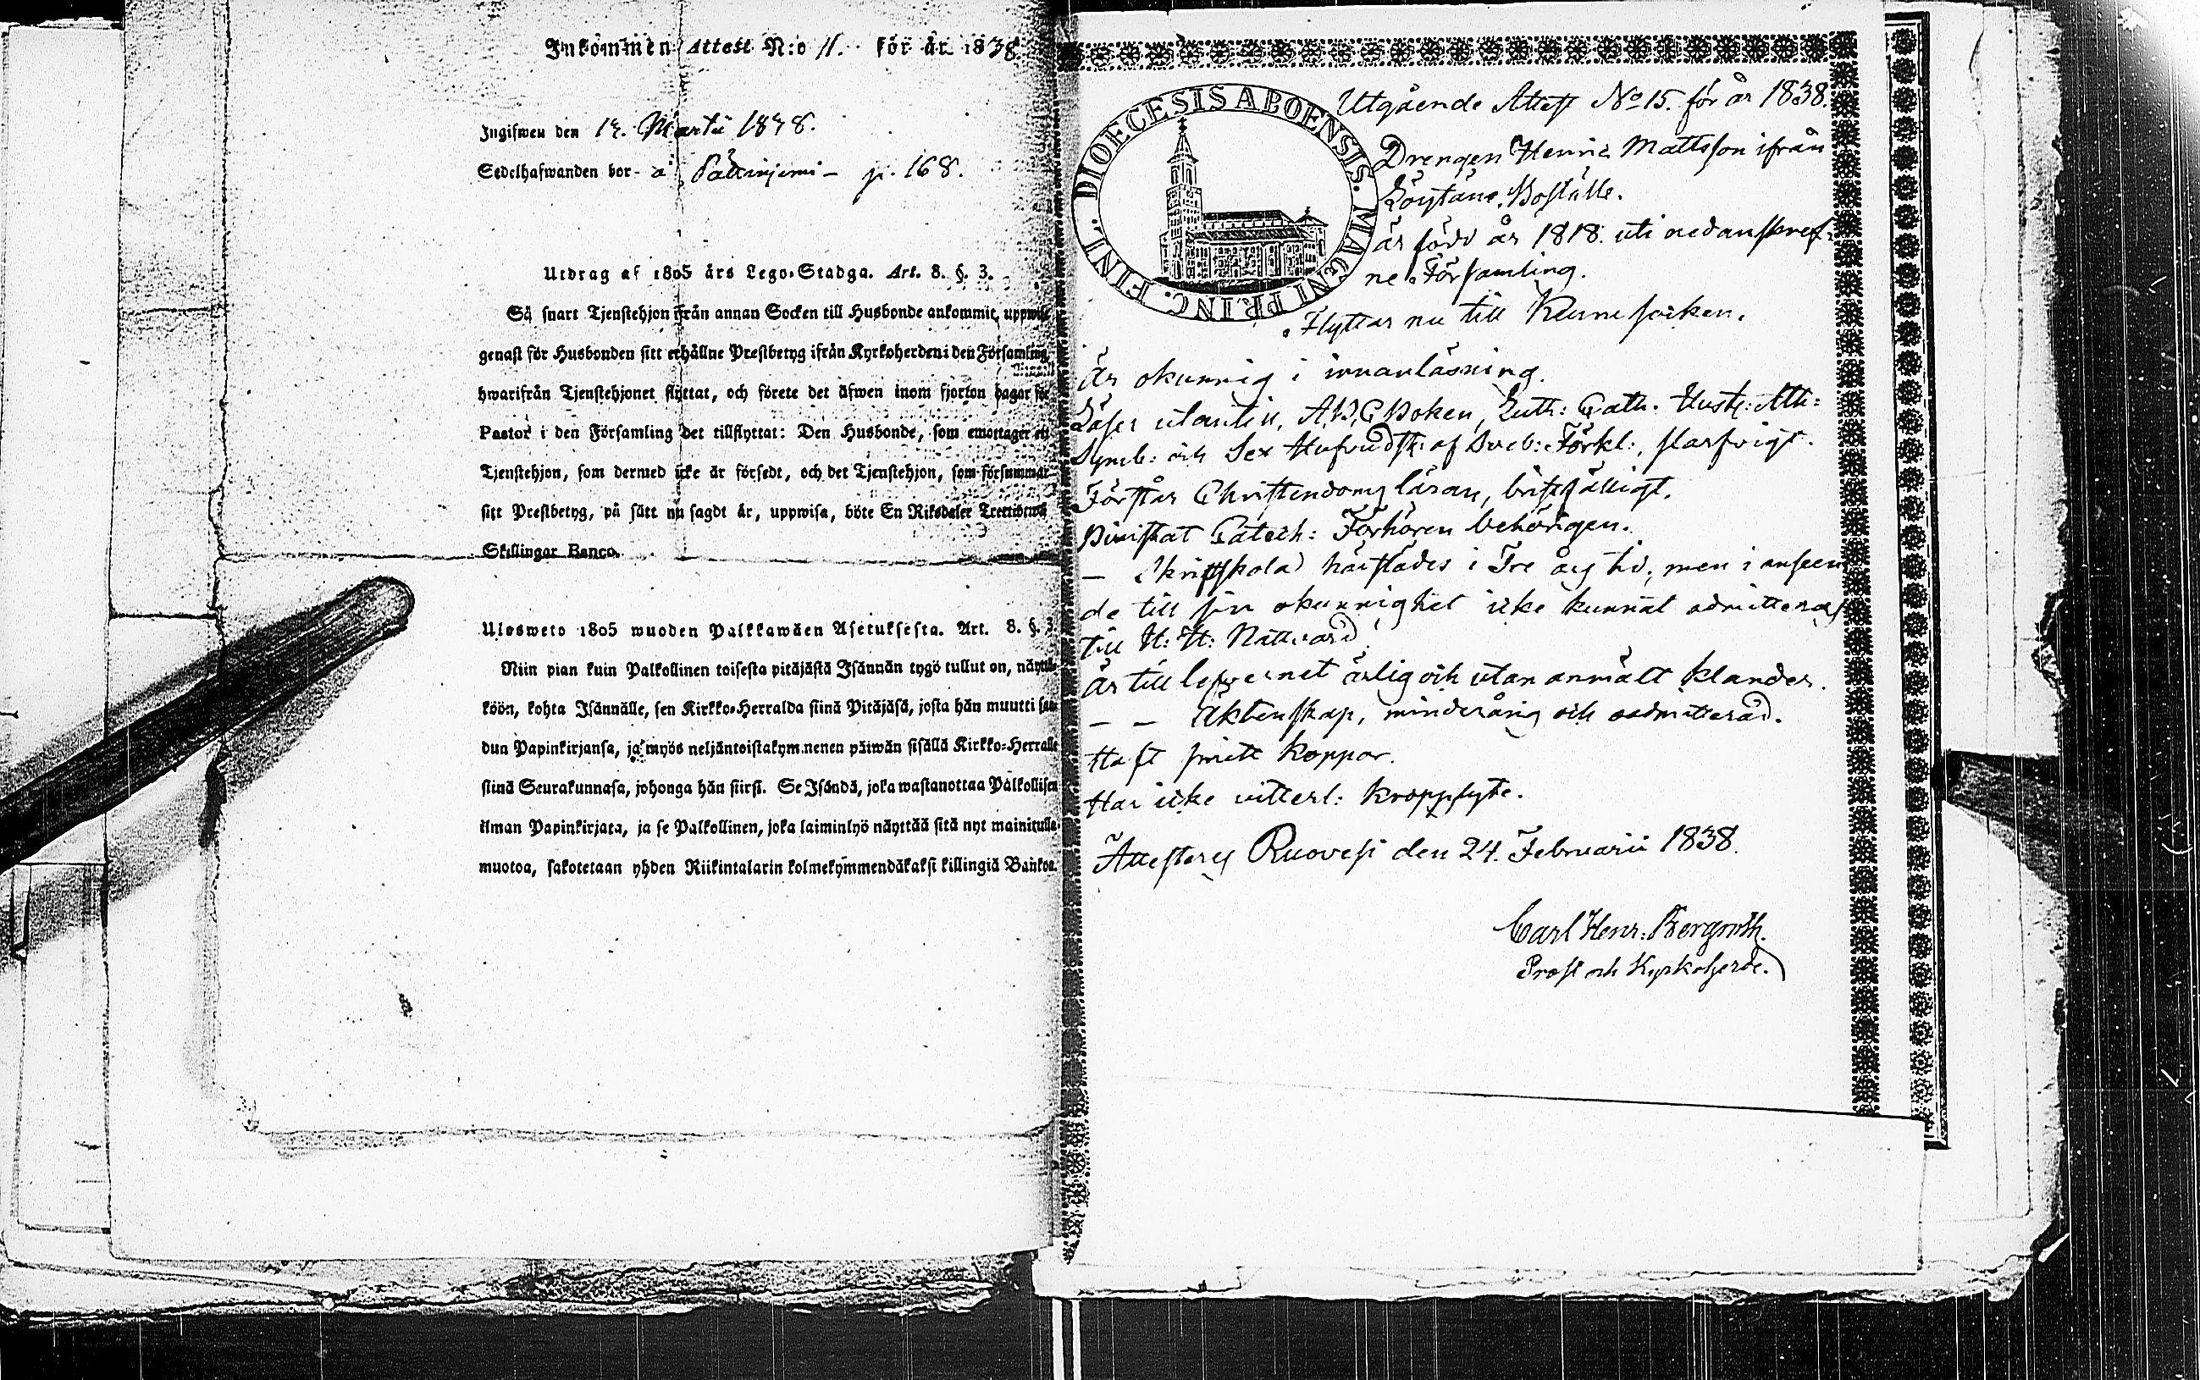 Inkommen Attest N:o 11. för år 1838
Ingifwen den 12. Martii 1838.
Sedelhafwanden bor å p. 168.
Utdrag af 1805 års Lego-Stadga. Art. 8. §. 3.
Så snart Tjenstehjon ifrån annan Socken till Husbonde ankommit, uppwise
genast för Husbonden sitt erhållne Prestbetyg ifrån Kyrkoherden i den Församling
hwarifrån Tjenstehjonet flyttat, och förete det äfwen inom fjorton dagar för
Pastor i den Församling det tillflyttat: Den Husbonde, som emottager ett
Tjenstehjon, som dermed icke är försedt, och det Tjenstehjon, som försummar
sitt Prestbetyg, på sätt nu sagdt är, uppwisa, böte En Riksdaler Trettiotwå
Skillingar Banco.
Ulosweto 1805 wuoden Palkkawäen Asetuksesta. Art. 8. §. 3.
Niin pian kuin Palkollinen toisesta pitäjästä Isännän tygö tullut on, näyttä-
köön, kohta Isännälle, sen Kirkko-Herralda siinä Pitäjäsä, josta hän muutti saa-
dun Papinkirjansa, ja myös neljäntoistakymmenen päiwän sisällä Kirkko-Herralle
siinä Seurakunnasa, johonga hän siirsi. Se Isändä, joka wastanottaa Palkollisen
ilman Papinkirjata, ja se Palkollinen, joka laiminlyö näyttää sitä nyt mainitulla
muotoa, sakotetaan yhden Riikintalarin kolmekymmendäkaksi killingiä Bankoa.
DIOECESIS ABOENSIS. MAGNI PRINC. FINL.
Utgående Attest No 15. för år 1838.
Drengen Henric Mattsson ifrån
Löytäne Boställe.
är född år 1818. uti nedanskref-
ne Församling.
Flyttar nu till socken.
Är okunnig i innanläsning.
Läser utantill, A.B.C.Boken, Luth: Cath. Hust: Ath:
Symb: och Sex Hufvudst: af Sveb: Förkl:, slarfvigt.
Förstår Christendoms läran, bristfälligt.
Bivistat Catech: Förhören behörigen.
— Skriftskola härstädes i Tre års tid; men i anseen
de till sin okunnighet icke kunnat admitteras
till H: H: Nattvard.
Är till lefvernet ärlig och utan anmält klander.
— — Äktenskap, minderårig och oadmitterad.
Haft koppor.
Har icke vitterl: kroppslyte.
Attesteras Ruovesi den 24. Februarii 1838.
Carl Henr: Bergroth.
Prost och Kyrkoherde.